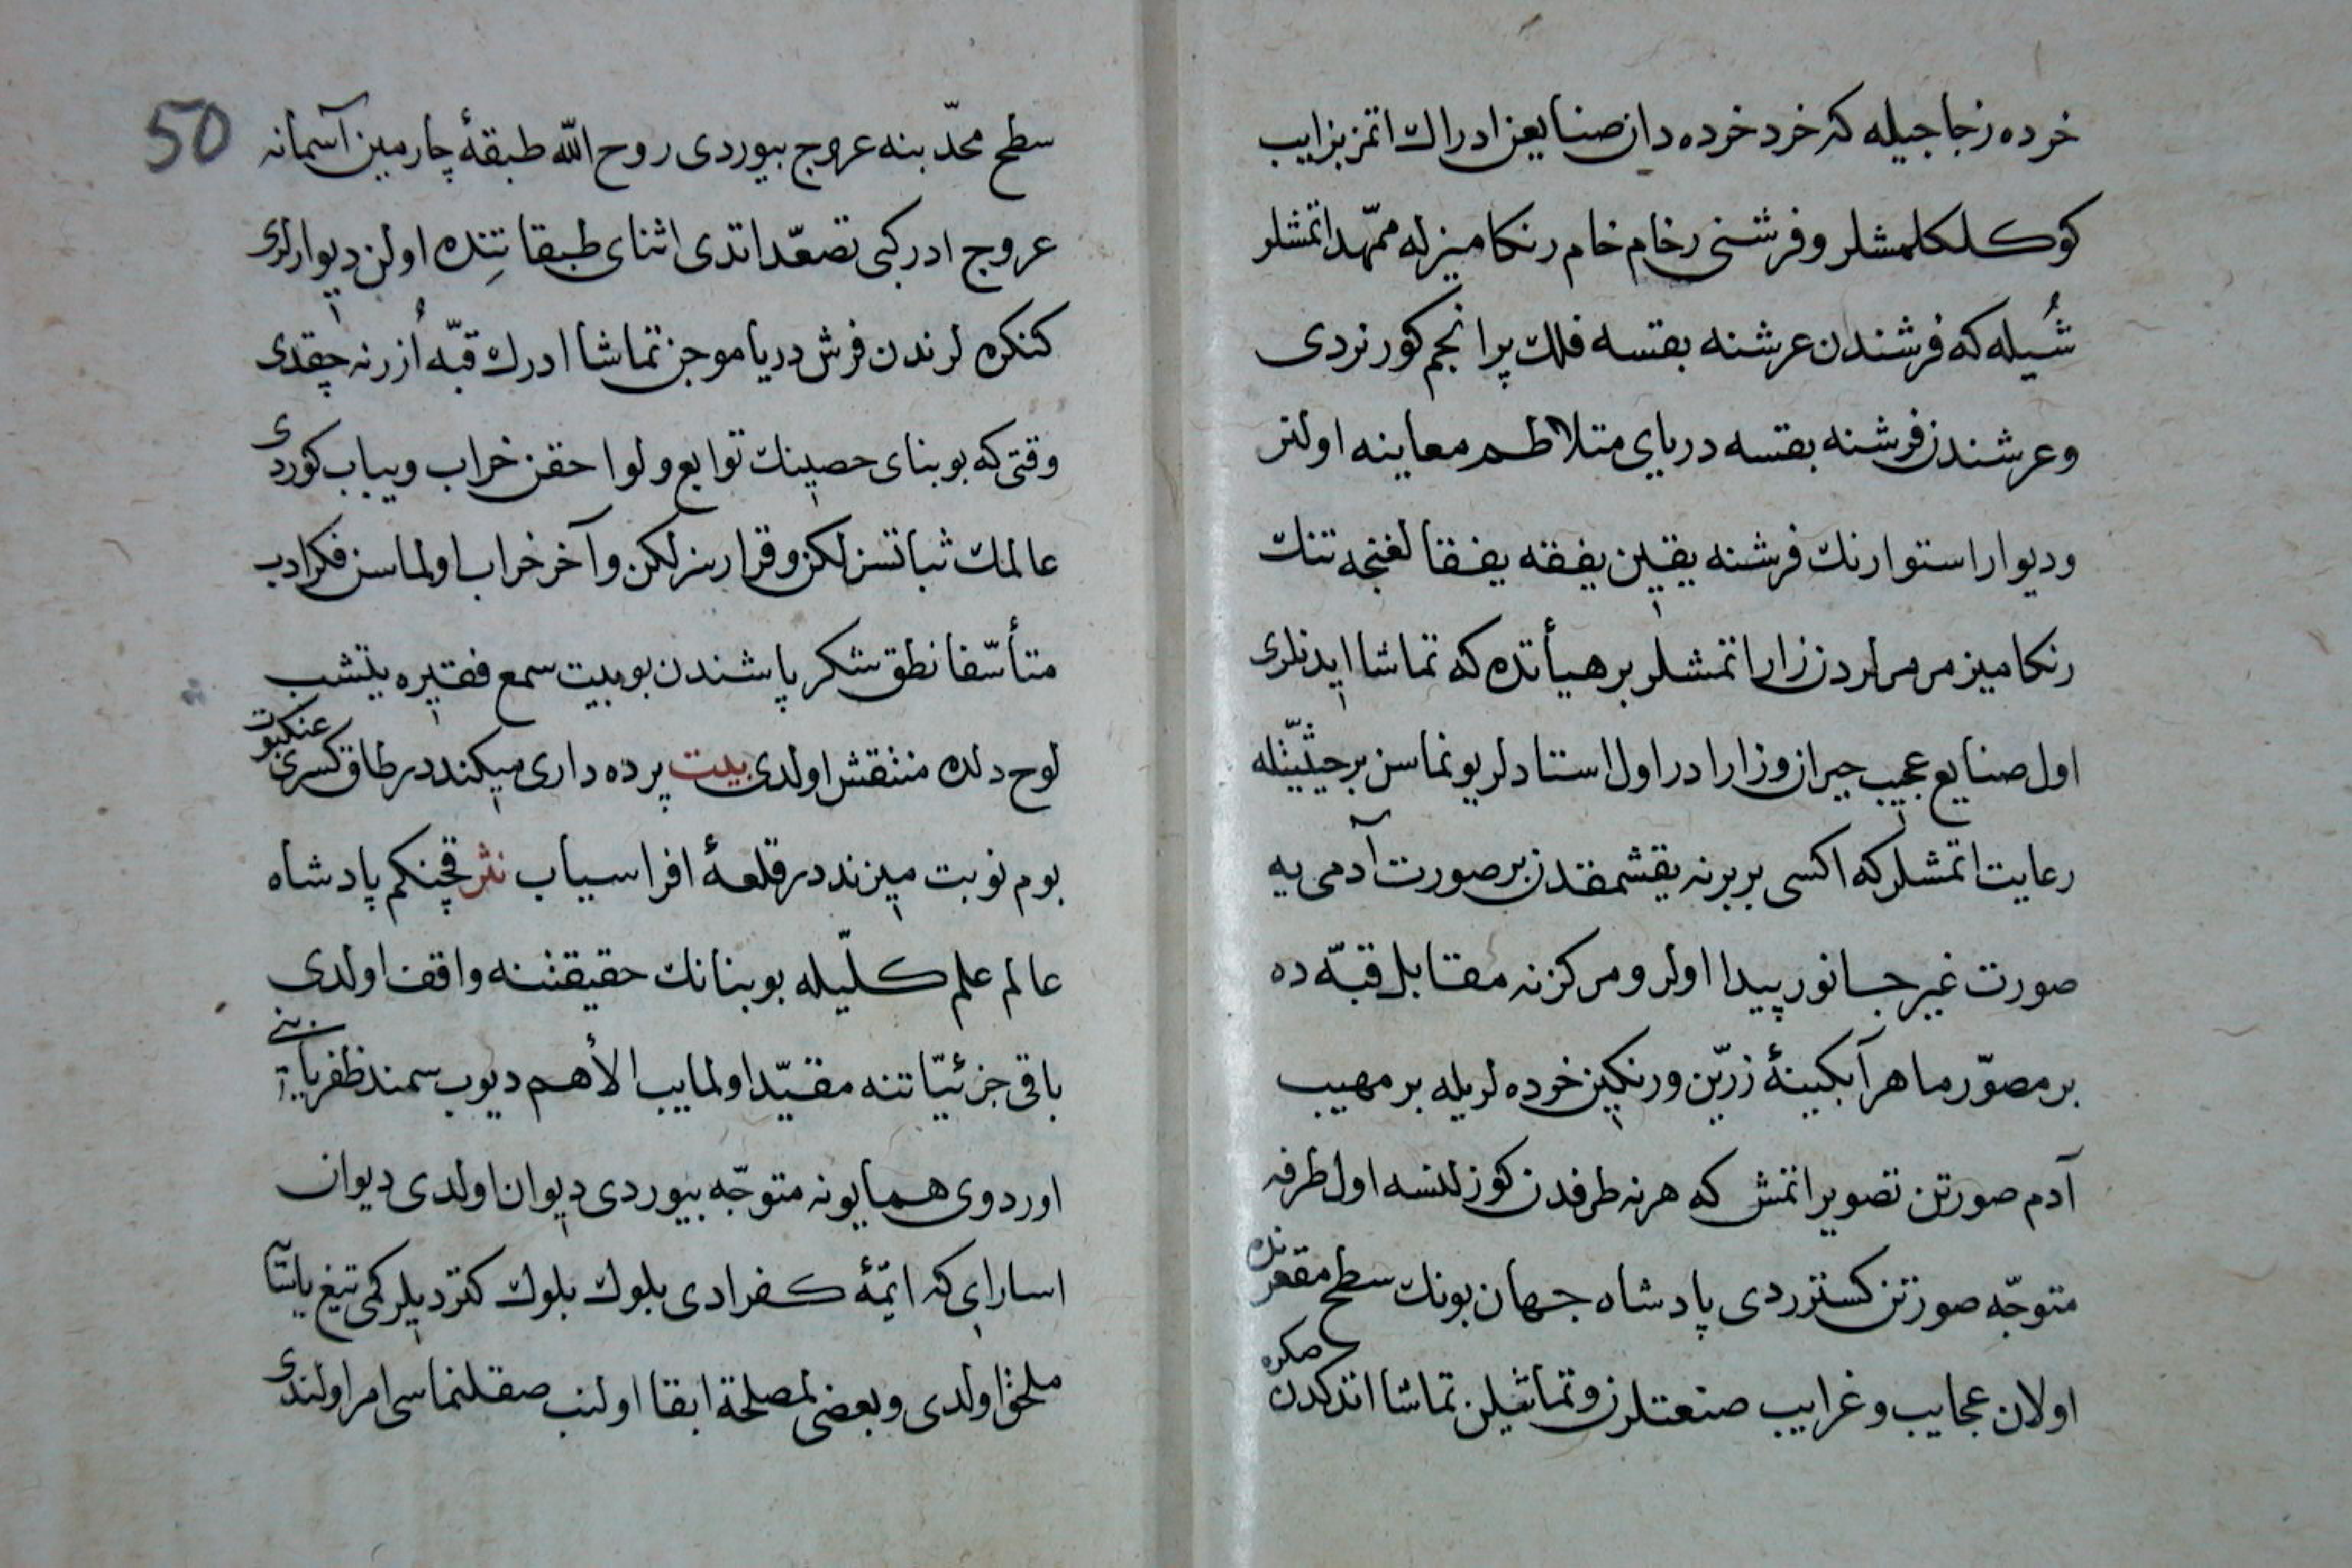 خرده زجاجیله که خرد خرده دان صنایعن ادراك اتمز بزایب
کوکلکلمشلر و فرشنی رخام خام رنکامیزله ممهّد اتمشلر
شُیله که فرشندن عرشنه بقسه فلك پر انجم کورنردی
و عرشندن فرشنه بقسه دریای متلاطم معاینه اولنر
و دیوار استوارنك فرشنه یقین یفقه یفقا لغنجه تنك
رنکامیز مرمرلردن زار اتمشلر بر هیأتده که تماشا ایدنلری
اول صنایع عجیب حیران و زار ادر اول استادلر یونماسن بر حیثیّتله
رعایت اتمشلر که اکسی بربرنه یقشمقدن بر صورت آدمی یه
صورت غیر جانور پیدا اولر و مرکزنه مقابل قبّه ده
بر مصوّر ماهر آبکینهٔ زرّین و رنکین خرده لریله بر مهیب
آدم صورتن تصویر اتمش که هر نه طرفدن کوزلنسه اول طرفه
متوجّه صورتن کسترردی پادشاه جهان بونك سطح مقعرنده
اولان عجایب و غرایب صنعتلرن و تماثیلن تماشا اتدکدن صکره
50
سطح محدّبنه عروج بیوردی روح الله طبقهٔ چارمین آسمانه
عروج ادر کبی تصعّد اتدی اثنای طبقاتِنده اولن دیوارلری
کنکره لرندن فرش دریا موجن تماشا ادرك قبّه اُزرنه چقدی
وقتی که بو بنای حصینك توابع و لواحقن خراب و یباب کوردی
عالمك ثباتسزلکن و قرارسزلکن و آخر خراب اولماسن فکر ادب
متأسّفا نطق شکر پاشندن بو بیت سمع فقیره یتشب
لوح دلده منتقش اولدی بیت پرده داری میکند در طاق کسری عنکبوت
بوم نوبت میزند در قلعهٔ افراسیاب نثر قچنکم پادشاه
عالم علم کلّیله بو بنانك حقیقتنه واقف اولدی
باقی جزئیّاتنه مقیّد اولمایب الأهم دیوب سمند ظفریابنی
اوردوی همایونه متوجّه بیوردی دیوان اولدی دیوان
اسارای که ائمّهٔ کفرادی بلوك بلوك کتردیلر کمی تیغ یاسّا
ملحق اولدی و بعضی لمصلحة ابقا اولنب صقلنماسی امر اولندی